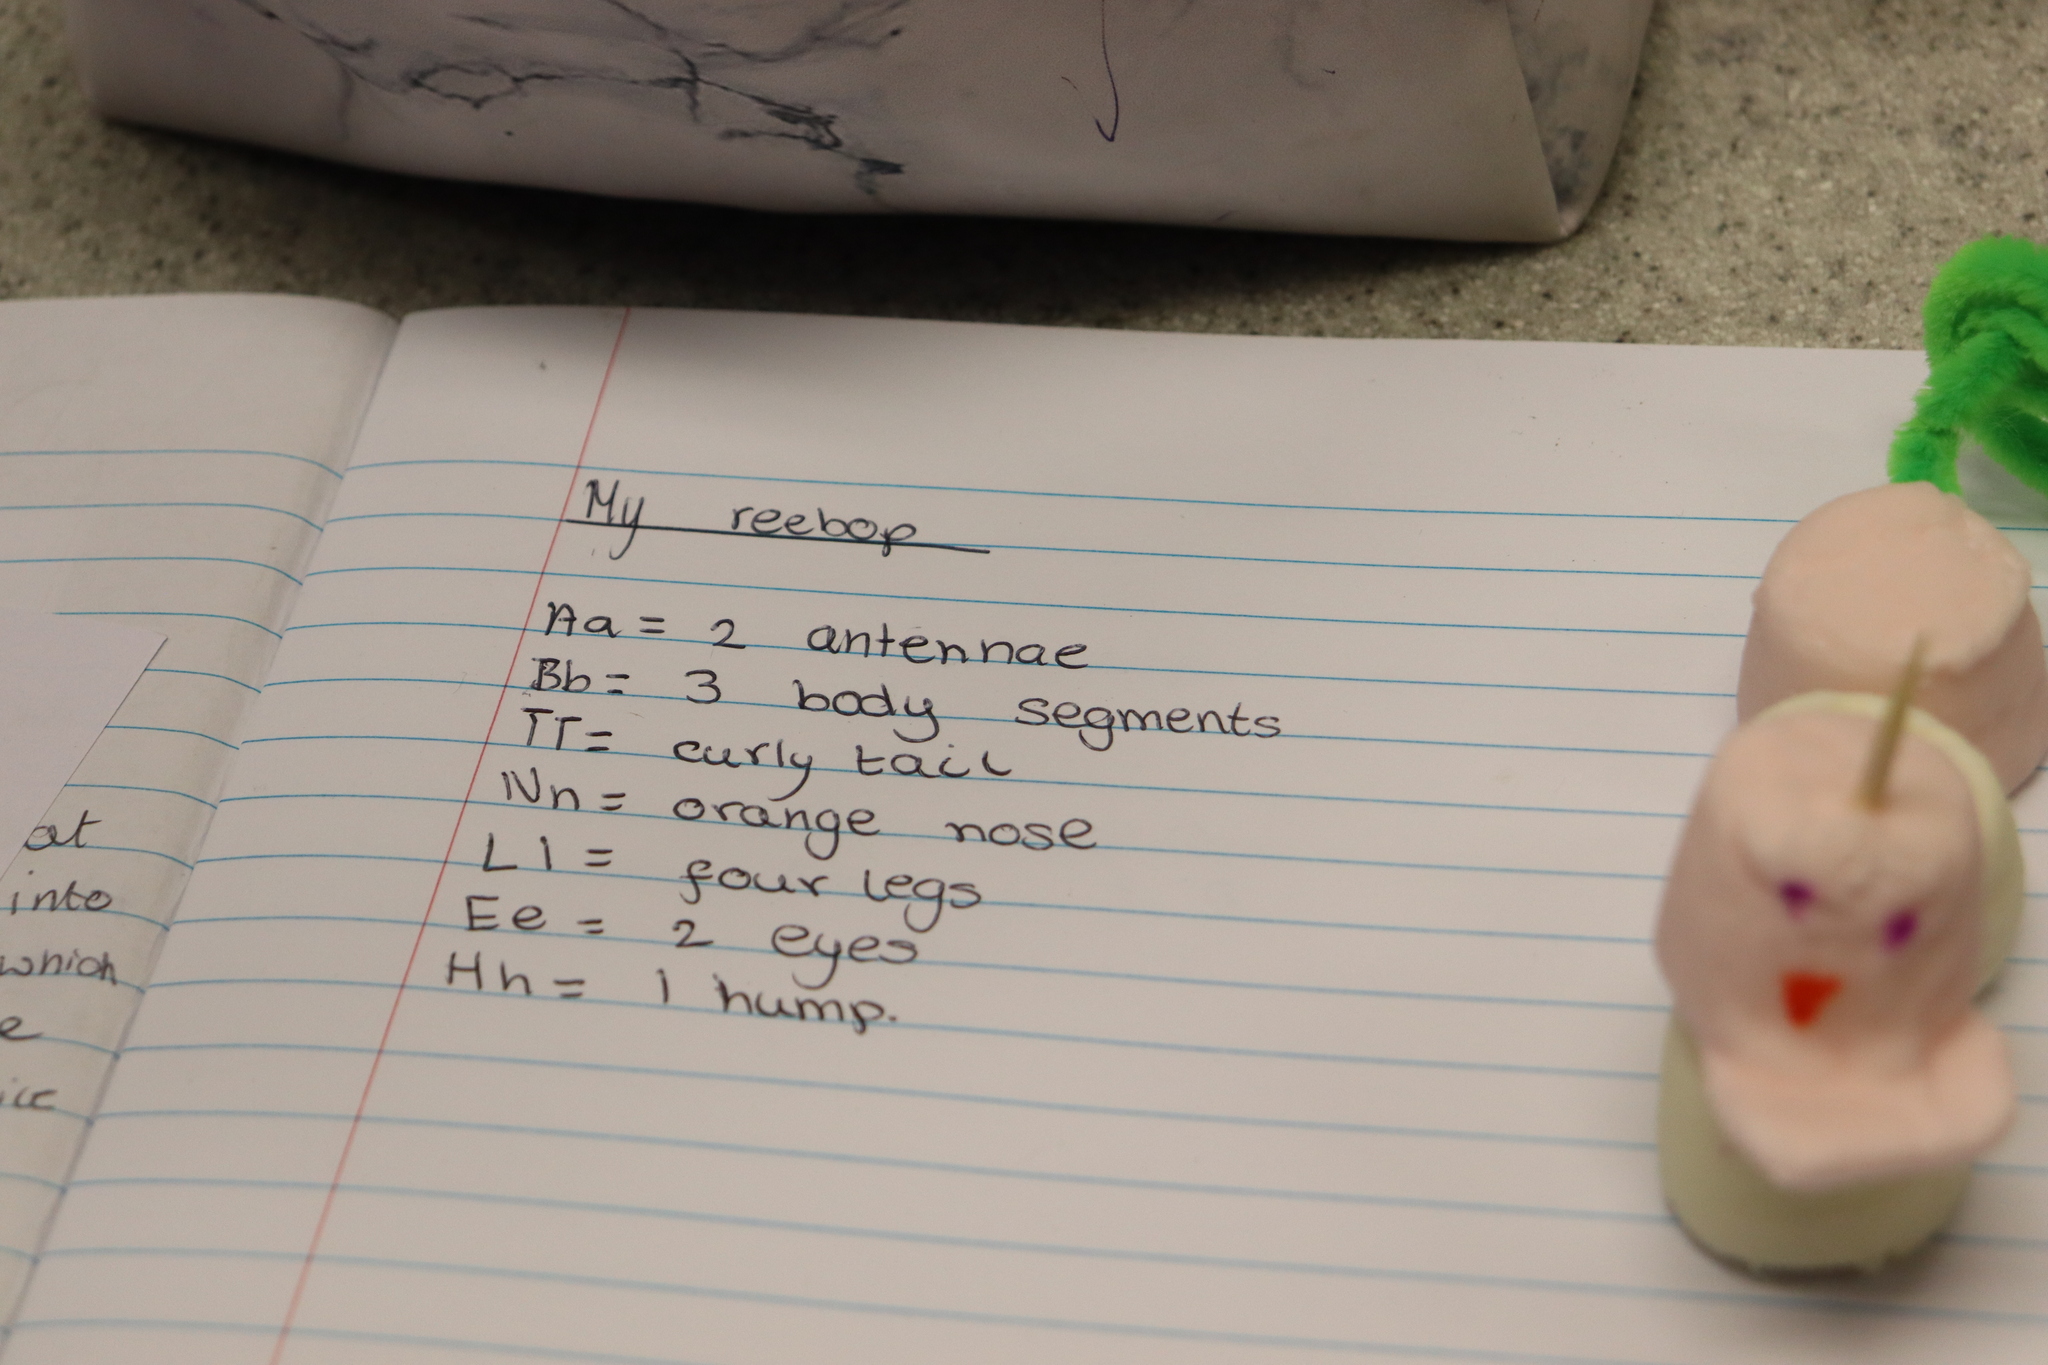 at
into
which
e
ice
My reebop
Aa = 2 antennae
Bb = 3 body segments
TT = curly tail
Nn = orange nose
Ll = four legs
Ee = 2 eyes
Hh = 1 hump.